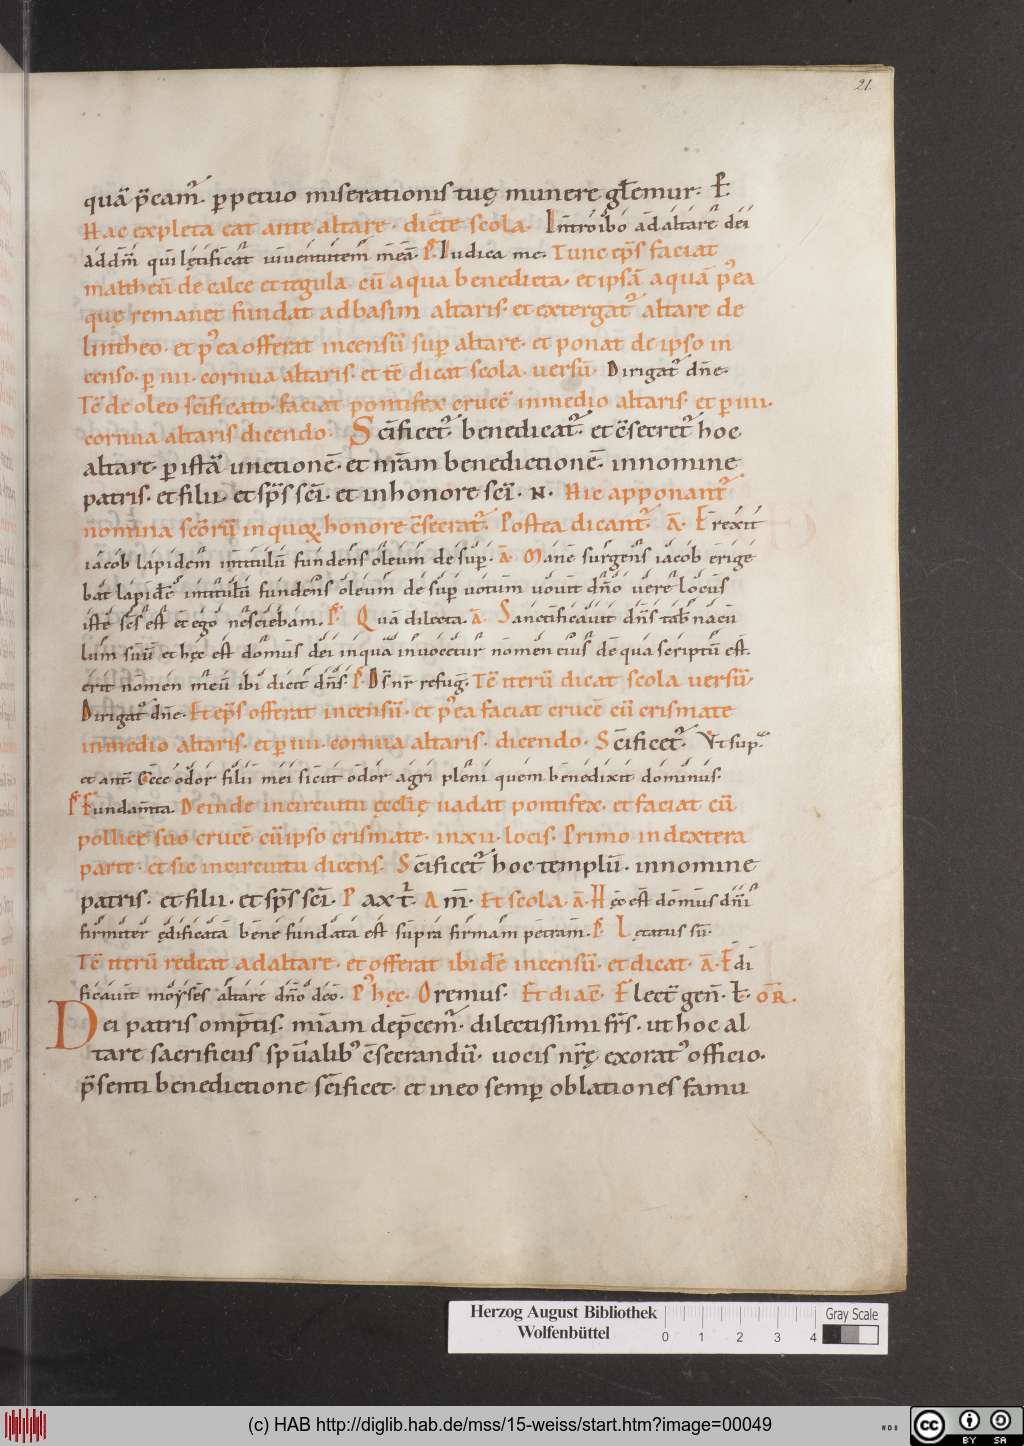 21.
quā p̄cam̄. ꝑpetuo miserationis tuę munere gl̄emur. P̄
Hac expleta eat ante altare. dicēte scola. Introibo ad altare dei
ad dm̄ qui lętificat iuventutem meā. P̄. Iudica me. Tunc ep̄s faciat
maltheū de calce et tegula. cū aqua benedicta. et ipsā aquā p̄ea
que remanet fundat ad basim altaris. et extergat᷒ altare de
lintheo. et p᷒ea offerat incensū sup̄ altare. et ponat de ipso in
censo. ꝑ iiii. cornua altaris. et tē dicat scola. versū. Dirigat᷒ dn̄e.
Tē de oleo sc̄ificato. faciat pontifex crucē in medio altaris. et ꝑ iiii.
cornua altaris dicendo. Sc̄ificet᷒. benedicat᷒. et c̄secret᷒ hoc
altare. ꝑ istā unctionē. et nr̄am benedictionē. in nomine
patris. et filii. et sp̄s sc̄i. et in honore sc̄i. N. Hic apponant᷒
nomina sc̄orū in quoꝝ honore c̄secrat᷒. Postea dicant᷒. ā. Erexit
iacob lapidem in titulū fundens oleum desuꝑ. ā. Mane surgens iacob erige
bat lapidē in titulū fundens oleum desuꝑ votum vovit dn̄o vere locus
iste sc̄s est et ego nesciebam. P̄. Quā dilecta. ā. Sanctificavit dn̄s tab̄nacū
lum suū et hęc est domus dei in qua invocetur nomen eius de qua scriptū est.
erit nomen meū ibi dicit dn̄s. P̄. Ds̄ nr̄ refuḡ. Tē iterū dicat scola versū.
Dirigat᷒ dn̄e. Et ep̄s offerat incensū. et p᷒ea faciat crucē cū crismate
in medio altaris. et ꝑ iiii. cornua altaris. dicendo. Sc̄ificet᷒. Ut sup̄.
et ant̄. Ecce odor filii mei sicut odor agri pleni quem benedixit dominus.
P̄. Fundam̄ta. Deinde in circuitu ęcclię vadat pontifex. et faciat cū
pollice suo crucē cū ipso crismate. in xii. locis. Primo in dextera
parte. et sic in circuitu dicens. Sc̄ificet᷒ hoc templū. in nomine
patris. et filii. et sp̄s sc̄i. Pax t̄. Am̄. Et scola. ā. Hęc est domus dn̄i
firmiter ędificata bene fundata est supra firmam petram. P̄. Lętatus sū.
Tē iterū redeat ad altare. et offerat ibidē incensū. et dicat. ā. Ędi
ficavit moyses altare dn̄o deo. P᷒ hęc. Oremus. Et diac̄. Flect̄ gen̄. L̄. OR̄.
Dei patris omp̄tis. mīam dep̄cem᷒. dilectissimi fr̄s. ut hoc al
tare sacrificiis sp̄ualib᷒ c̄secrandū. vocis nr̄ę exorat᷒ officio.
p̄senti benedictione sc̄ificet. et in eo semꝑ oblationes famu
Herzog August Bibliothek
Wolfenbüttel
0 1 2 3 4
Gray Scale
(c) HAB http://diglib.hab.de/mss/15-weiss/start.htm?image=00049
cc BY SA